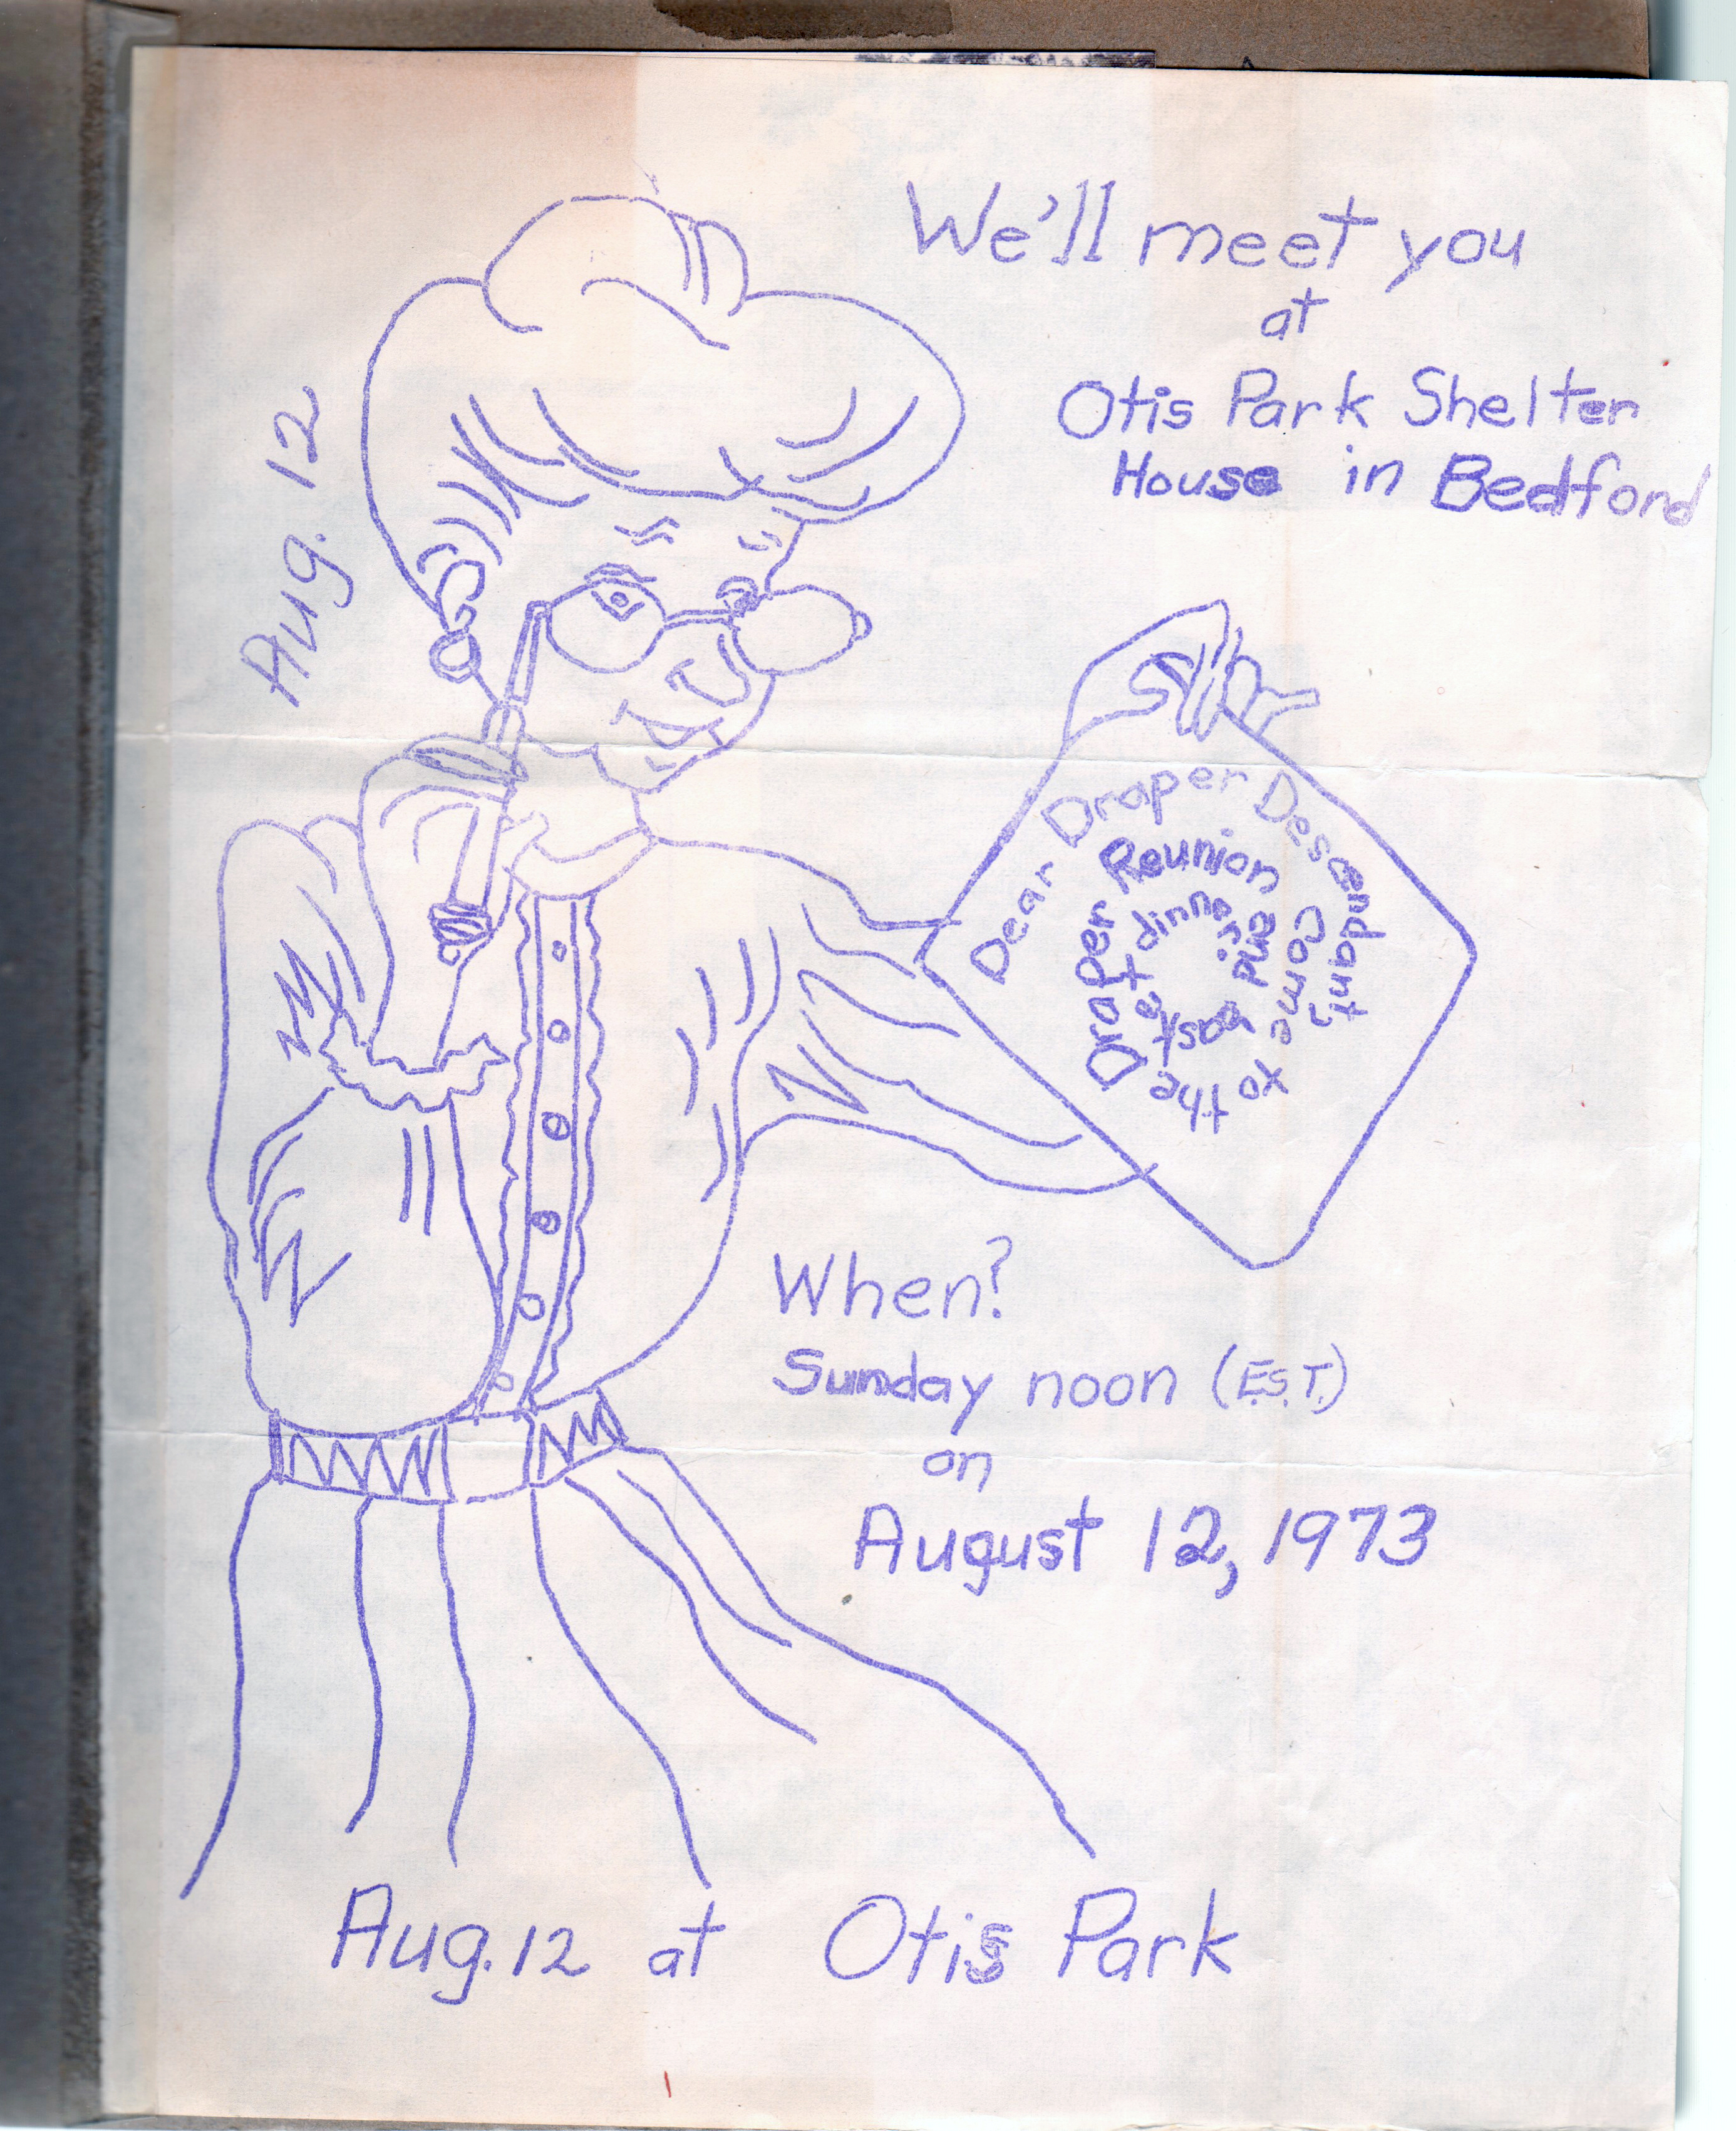 We'll meet you
at
Otis Park Shelter
House in Bedford
Aug. 12
Dear Draper Descendant,
Come to the
Draper Reunion and
basket dinner
When?
Sunday noon (E.S.T.)
on
August 12, 1973
Aug. 12 at Otis Park